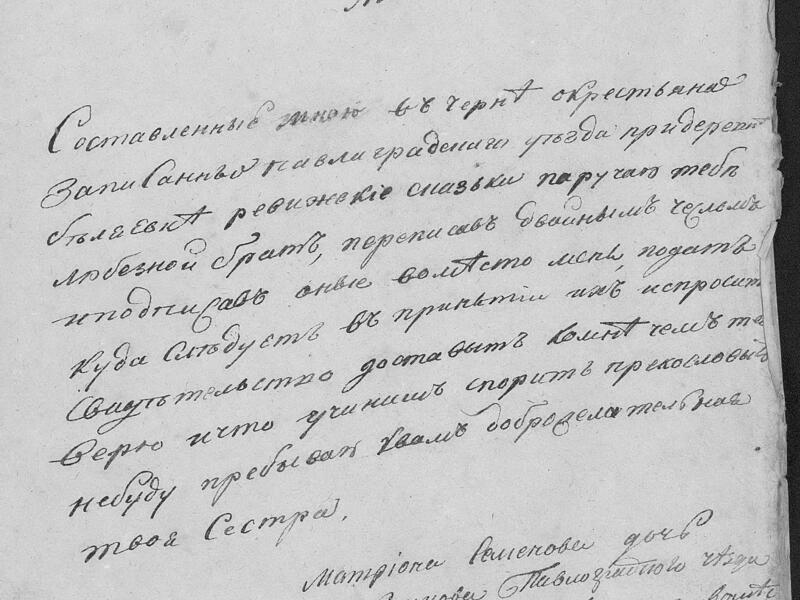 Составленные мною въ чернѣ окрестьянѣ
записанныѣ павлаградскаго уѣзда придеревнѣ
бѣляевкѣ ревижскіе сказьки паручаю тебѣ
любезной братъ, переписавъ двайнымъ числомъ
иподписавъ оные вомѣсто мене, податъ
куда слѣдуетъ въ принятіи ихъ испросить
свидѣтельство доставытъ комнѣ чемъ те
верю ичто учинишъ спорить прекословыть
небуду пребываю квамъ доброделательная
твоя Сестра,
Матріона Семенова дочь
Павлоградного уѣзда